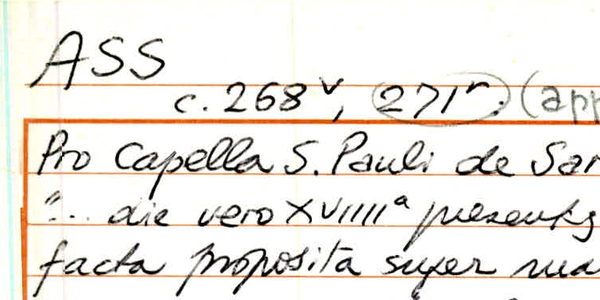 ASS
c. 268v, 271r. (app
Pro Capella S. Pauli de Sar
"... die vero XVIIIIa presentis
facta proposita super